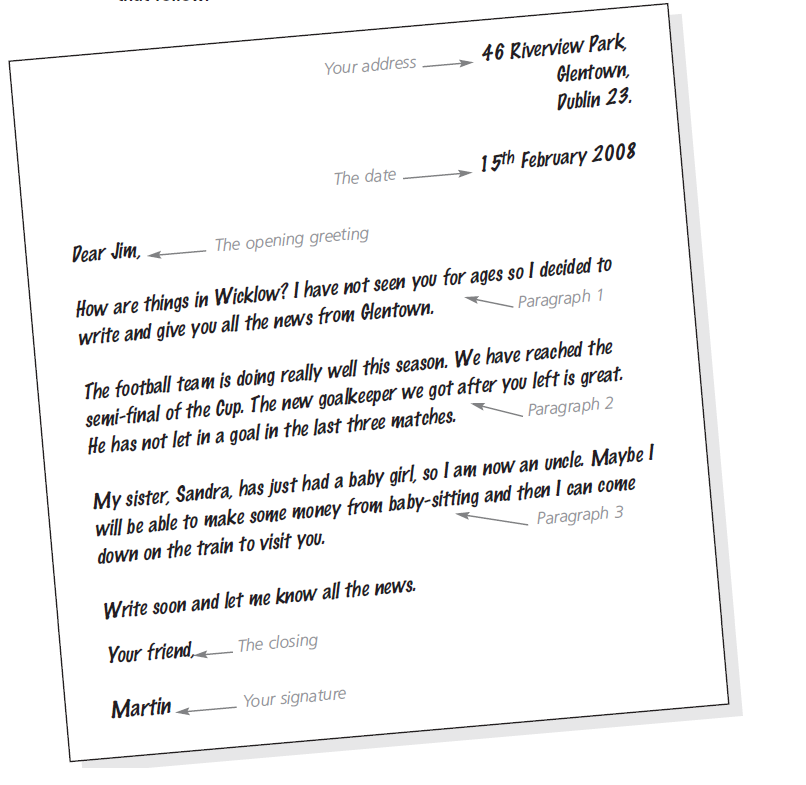 Your address
46 Riverview Park,
Glentown,
Dublin 23.
The date
15th February 2008
Dear Jim,
The opening greeting
How are things in Wicklow? I have not seen you for ages so I decided to
write and give you all the news from Glentown.
Paragraph 1
The football team is doing really well this season. We have reached the
semi-final of the Cup. The new goalkeeper we got after you left is great.
He has not let in a goal in the last three matches.
Paragraph 2
My sister, Sandra, has just had a baby girl, so I am now an uncle. Maybe I
will be able to make some money from baby-sitting and then I can come
down on the train to visit you.
Paragraph 3
Write soon and let me know all the news.
Your friend,
The closing
Martin
Your signature